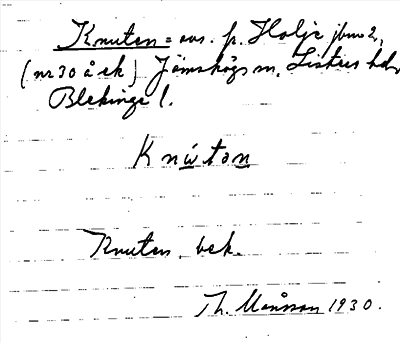 Knuten = avs. fr. Holje jbno 2,
(nr 30 å ek) Jämshögs sn, Listers hd,
Blekinge l.
Knùtən
Knuten, bek.
Th. Månsson 1930.